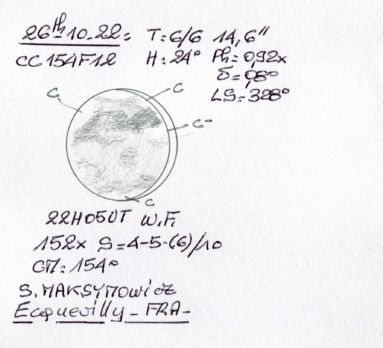 26th 10-22= T=6/6 14,6"
CC154F12 H=24° Ph=0,92x
δ=0,8°
LS=328°
C C
C-
C
22H05UT W.F.
152x S=4-5-(6)/10
CM=154°
S.MAKSYMOWICZ
Ecquevilly - FRA-